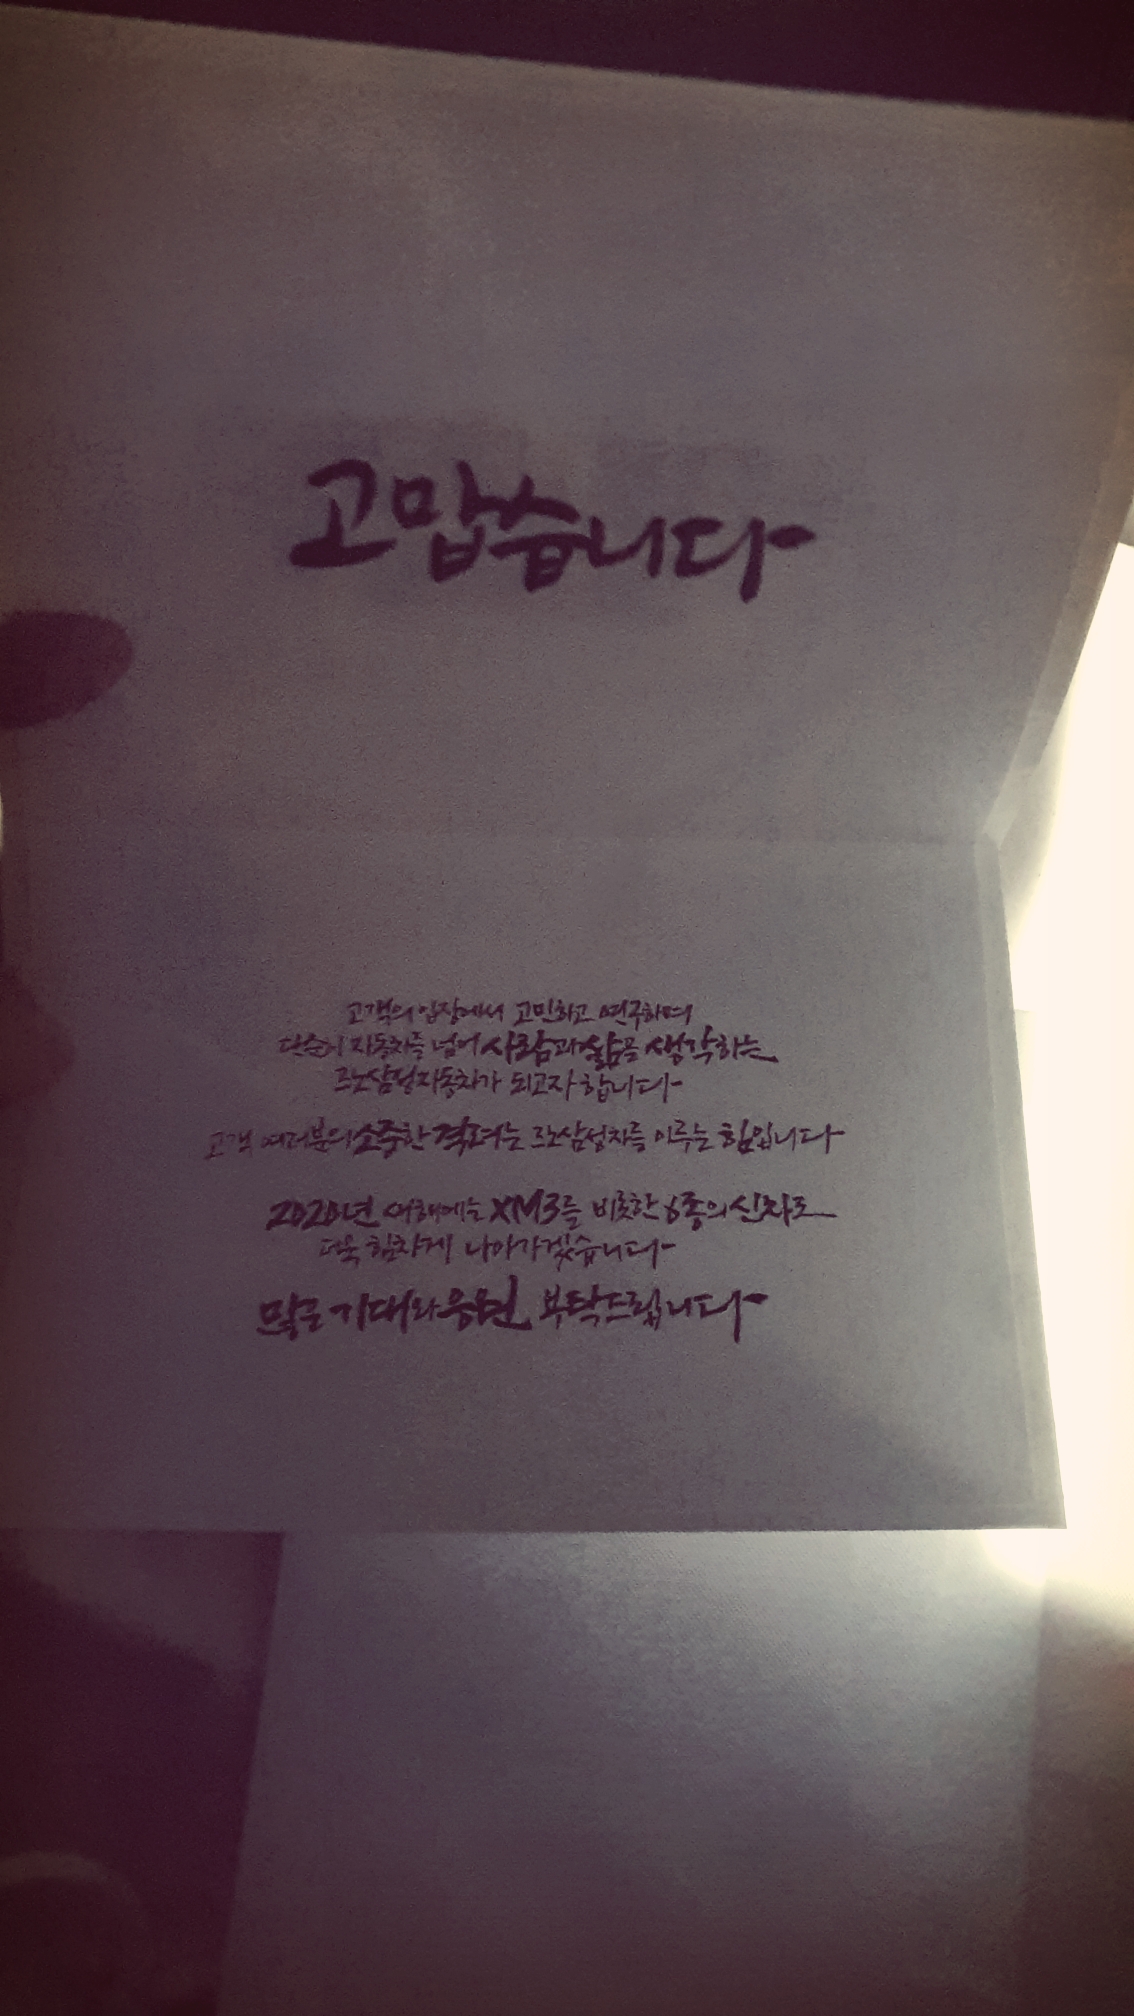 고맙습니다
고객의 입장에서 고민하고 연구하며
단순히 자동차를 넘어 사람과 삶을 생각하는
르노삼성자동차가 되고자 합니다
고객 여러분의 소중한 격려는 르노삼성차를 이루는 힘입니다
2020년 새해에는 XM3를 비롯한 6종의 신차로
더욱 힘차게 나아가겠습니다
많은 기대와 응원 부탁드립니다